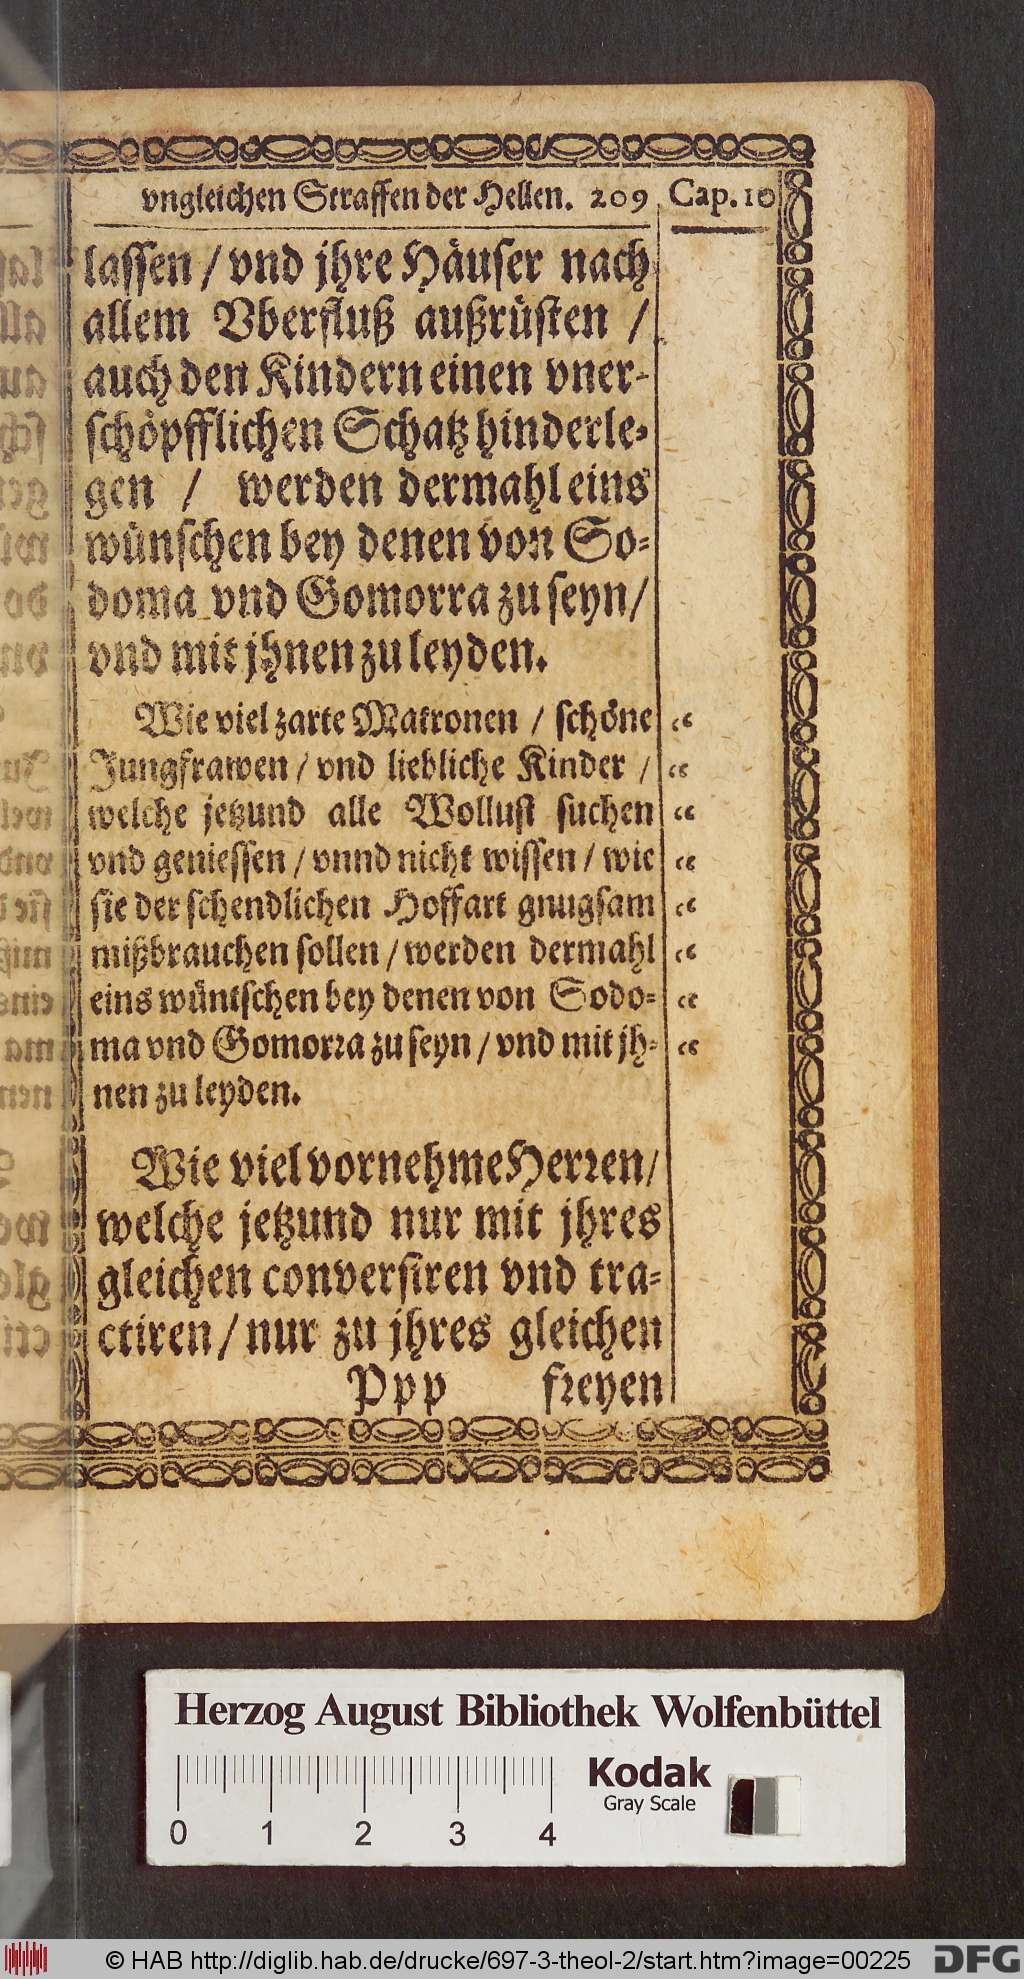 vngleichen Straffen der Hellen. 209 Cap. 10
lassen / vnd jhre Häuser nach
allem Vberfluß außrüsten /
auch den Kindern einen vner-
schöpfflichen Schatz hinderle-
gen / werden dermahl eins
wünschen bey denen von So-
doma vnd Gomorra zu seyn /
vnd mit jhnen zu leyden.
Wie viel zarte Matronen / schöne “
Jungfrawen / vnd liebliche Kinder / “
welche jetzund alle Wollust suchen “
vnd geniessen / vnnd nicht wissen / wie “
sie der schendlichen Hoffart gnugsam “
mißbrauchen sollen / werden dermahl “
eins wüntschen bey denen von Sodo- “
ma vnd Gomorra zu seyn / vnd mit jh- “
nen zu leyden.
Wie viel vornehme Herren /
welche jetzund nur mit jhres
gleichen conversiren vnd tra-
ctiren / nur zu jhres gleichen
Ppp freyen
Herzog August Bibliothek Wolfenbüttel
Kodak
Gray Scale
0 1 2 3 4
© HAB http://diglib.hab.de/drucke/697-3-theol-2/start.htm?image=00225 DFG